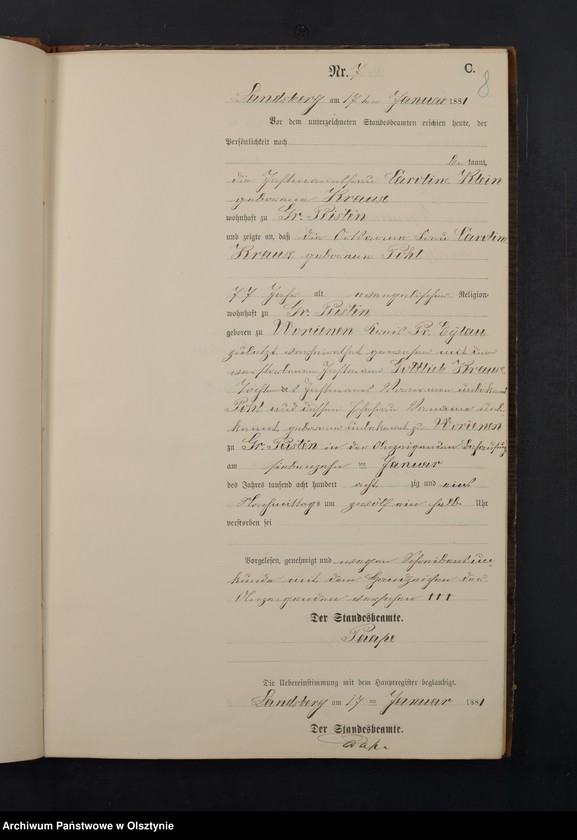 Nr. 7
C.
8
Landsberg am 17ten Januar 1881
Vor dem unterzeichneten Standesbeamten erschien heute, der
Persönlichkeit nach
be kannt,
die Instmannsfrau Caroline Klein
geborene Kraus
wohnhaft zu Gr. Peisten
und zeigte an, daß die Ortsarme Frau Caroline
Kraus geborene Pohl
77 Jahr alt evangelischer Religion
wohnhaft zu Gr. Peisten
geboren zu Worienen Kreis Pr. Eylau
zuletzt verheirathet gewesen mit dem
verstorbenen Instmann Gottlieb Kraus
Tochter des Instmanns Vornamen unbekannt
Pohl und dessen Ehefrau Vorname unbe
kannt, geborene unbekannt zu Worienen
zu Gr. Peisten in der Anzeigenden Behausung
am siebenzehn ten Januar
des Jahres tausend acht hundert acht zig und eins
Nachmittags um zwölf ein halb Uhr
verstorben sei
Vorgelesen, genehmigt und wegen Schreibensun
kunde mit dem Handzeichen der
Anzeigenden versehen ttt
Der Standesbeamte.
Pape
Die Uebereinstimmung mit dem Hauptregister beglaubigt.
Landsberg am 17 ten Januar 1881
Der Standesbeamte.
Pape
Archiwum Państwowe w Olsztynie